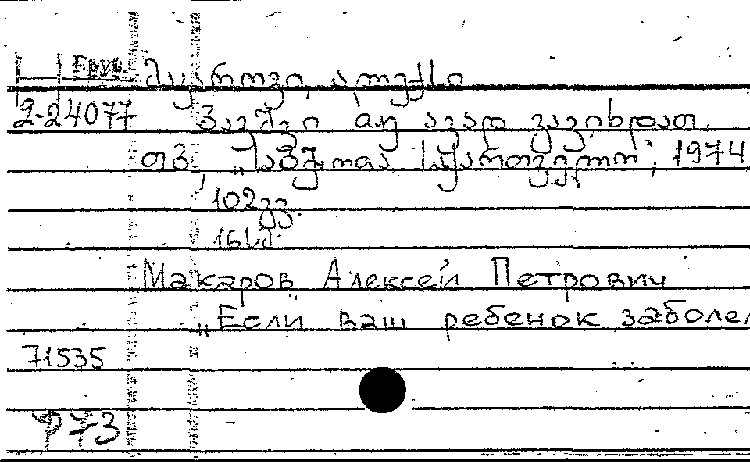 მაკაროვი ალექსი
2-24077 ბავშვი თუ ავად გაგიხდათ
თბ. „საბჭოთა საქართველო", 1974
102 გვ.
16 სმ.
Макаров Алексей Петрович
„Если ваш ребенок заболел
71535
773